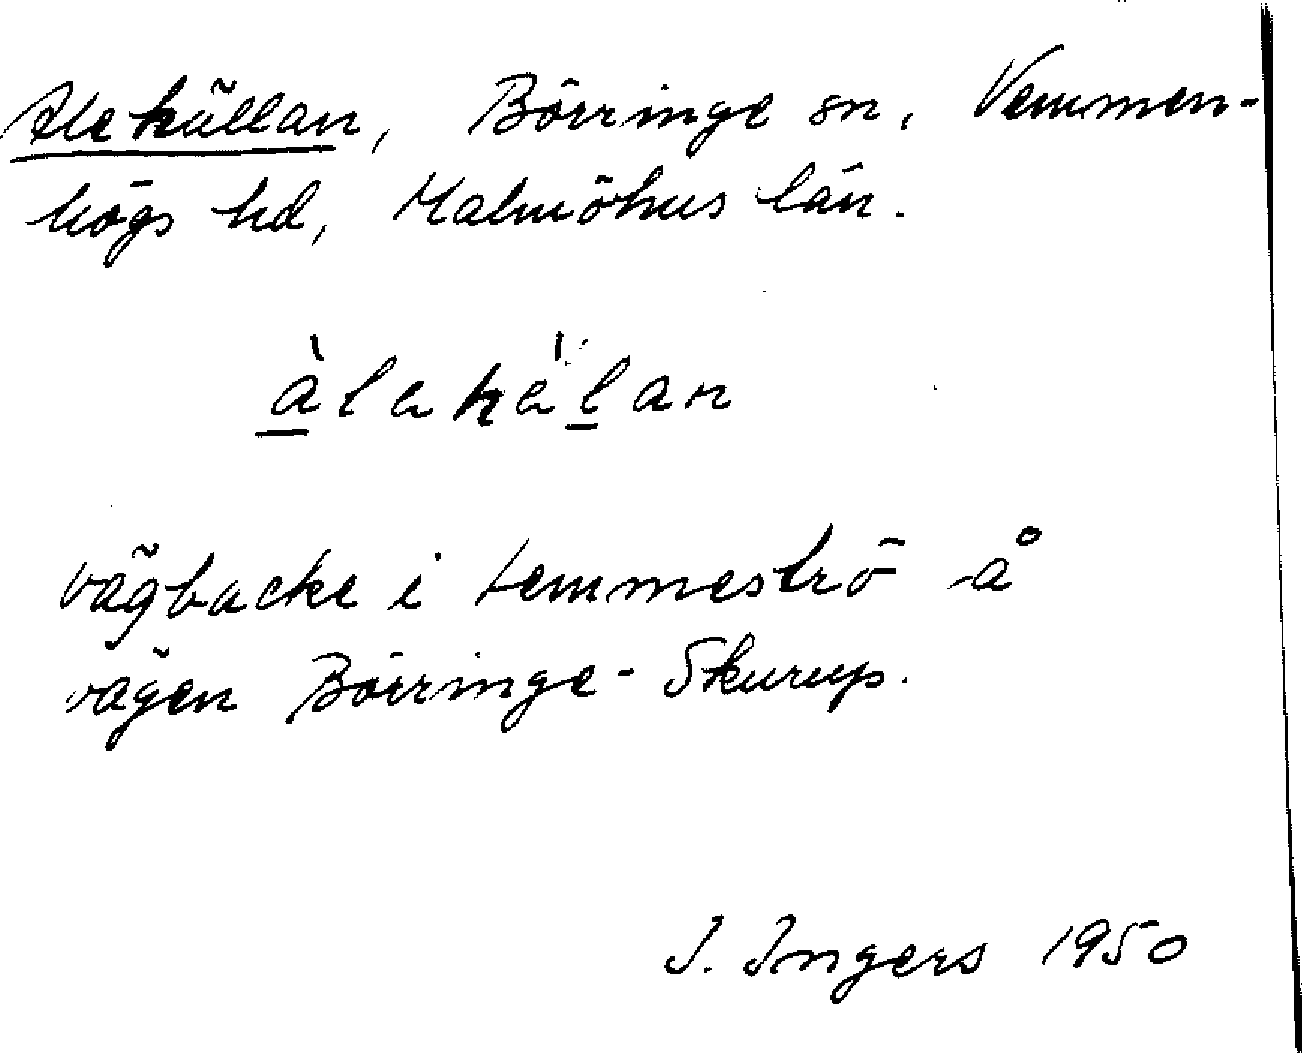 Alekällan, Börringe sn, Vemmen-
högs hd, Malmöhus län.
àlakä'lan
vägbacke i Lemmeströ å
vägen Börringe - Skurup.
I. Ingers 1950